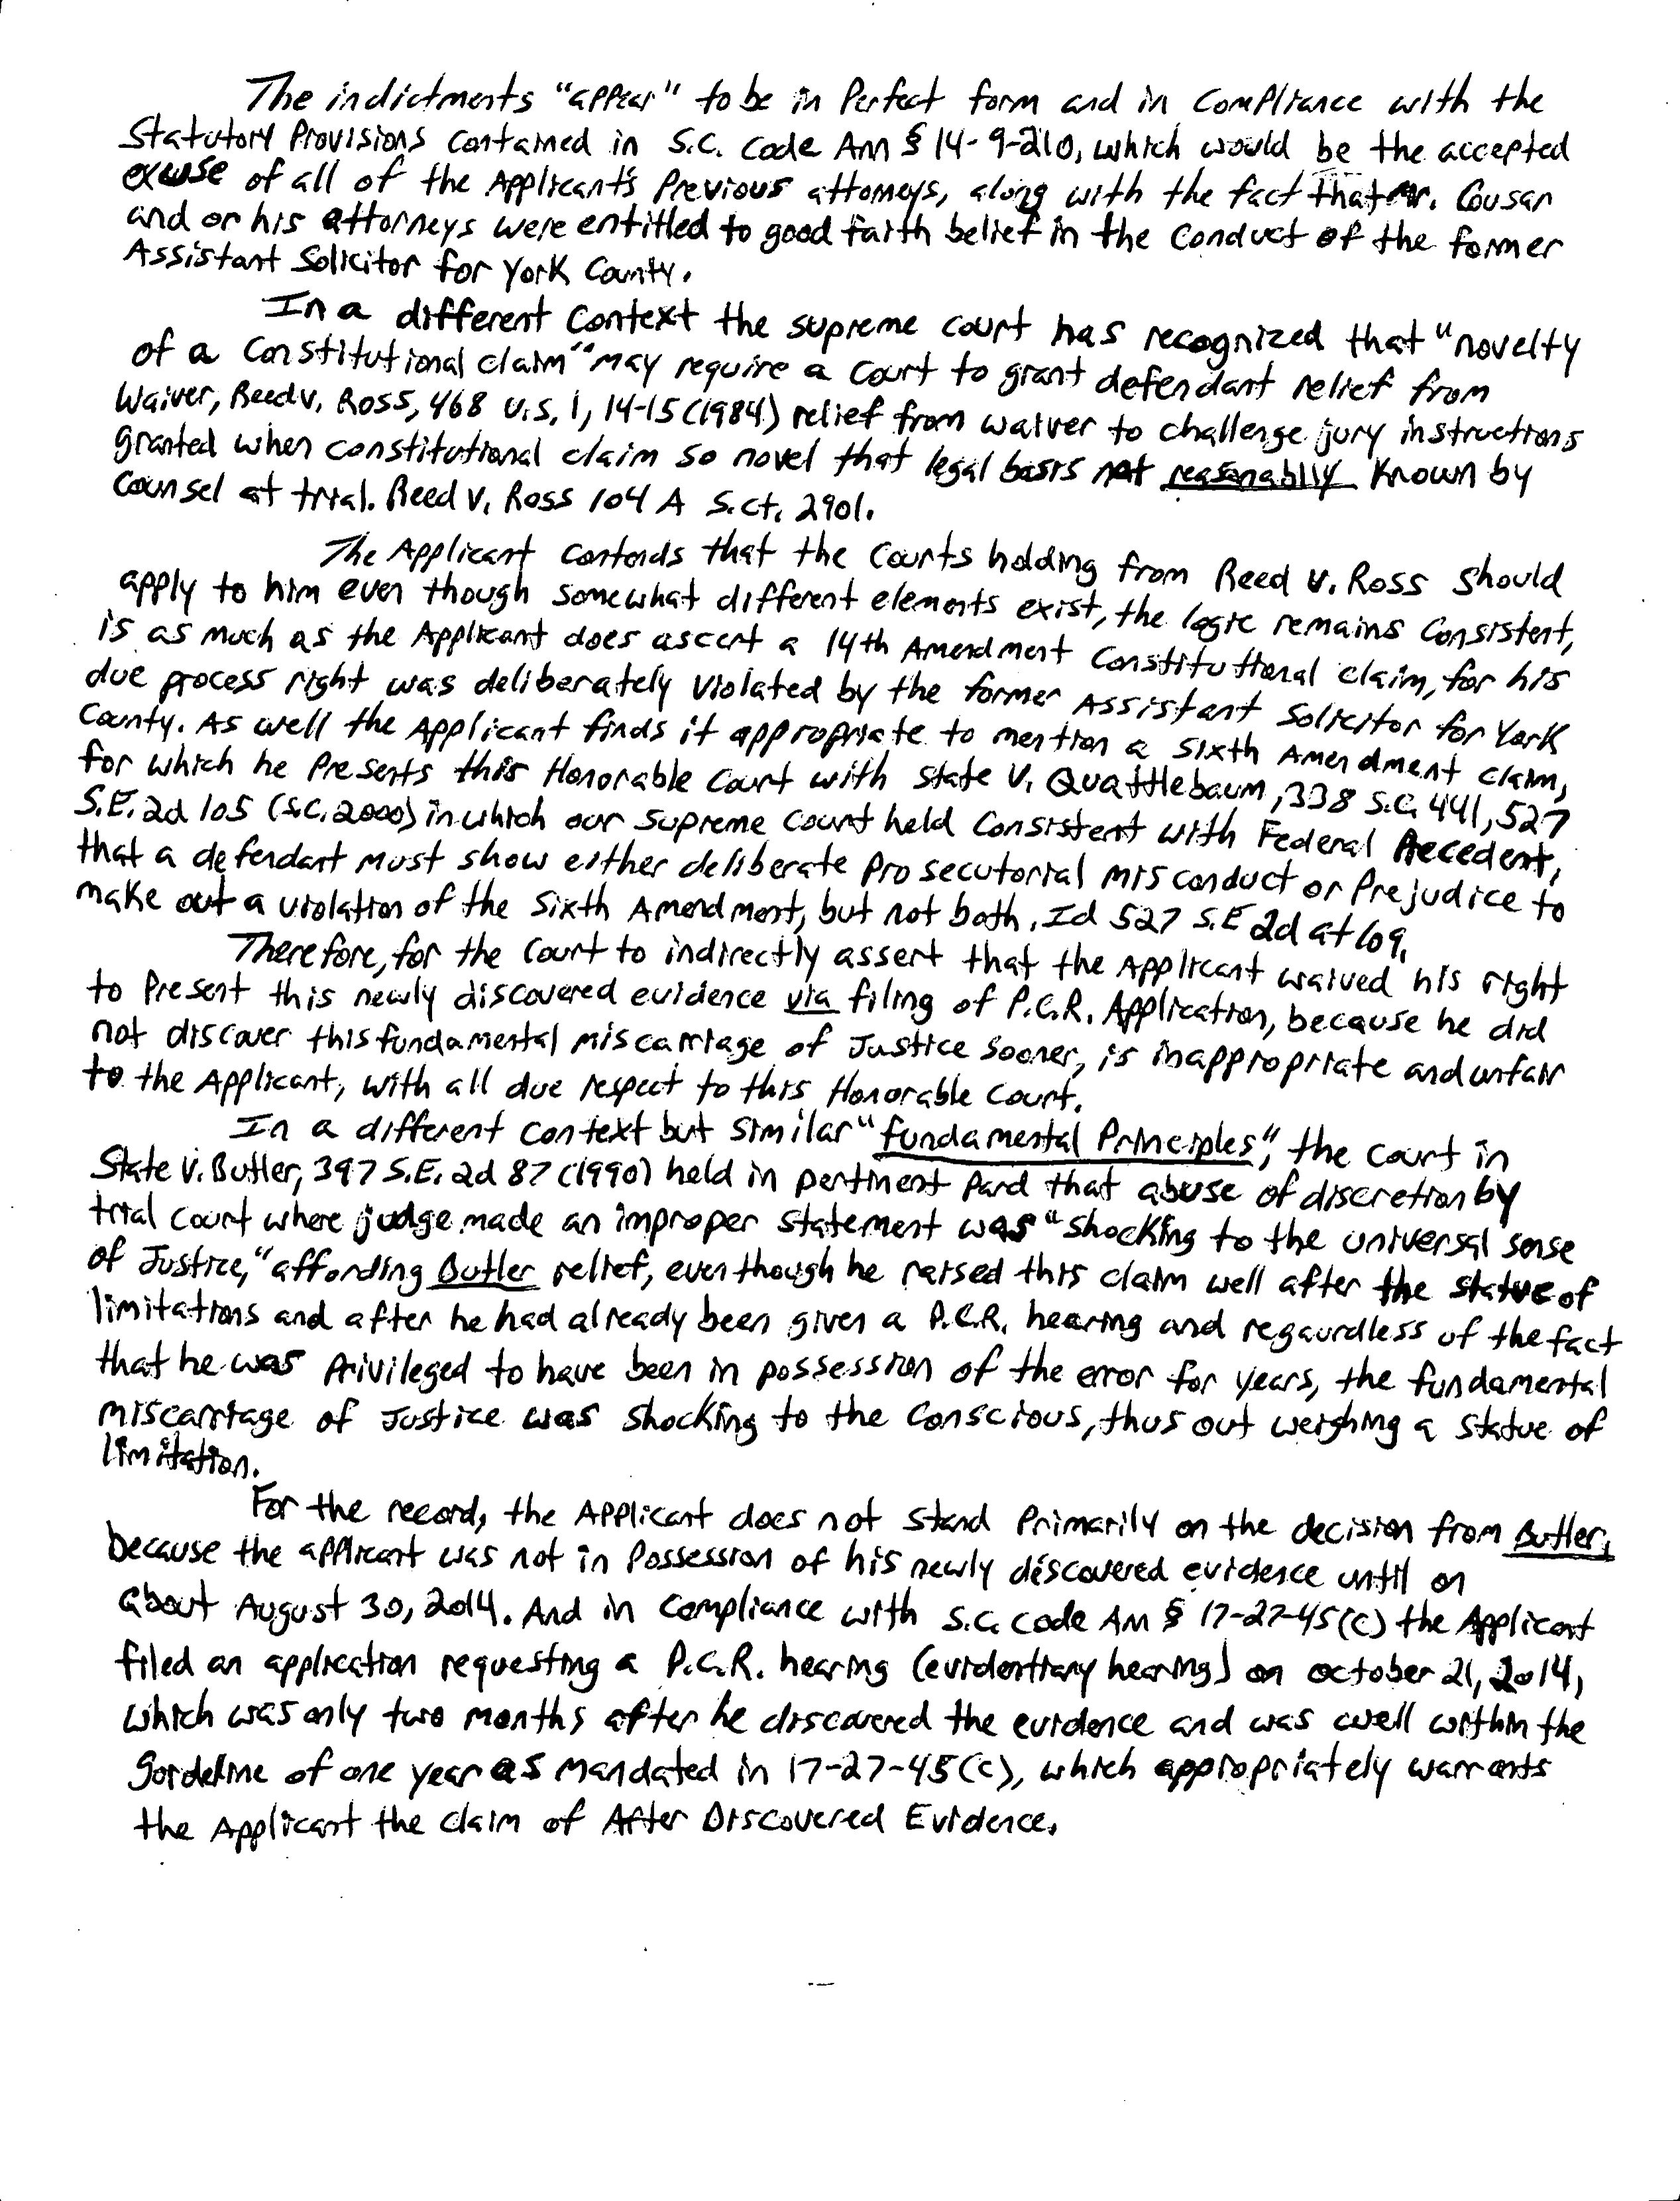 The indictments "appear" to be in Perfect form and in Compliance with the
Statutory Provisions Contained in S.C. Code Ann § 14-9-210, which would be the accepted
excuse of all of the Applicant's Previous attorneys, along with the fact that Mr. Cousar
and or his attorneys were entitled to good faith belief in the Conduct of the former
Assistant Solicitor for York County.
In a different Context the supreme court has recognized that "novelty
of a Constitutional claim" "may require a Court to grant defendant relief from
Waiver, Reed v. Ross, 468 U.S. 1, 14-15 (1984) relief from waiver to challenge jury instructions
granted when constitutional claim so novel that legal basis not reasonablly Known by
Counsel at trial. Reed v. Ross 104 A S.ct. 2901.
The Applicant Contends that the Courts holding from Reed v. Ross should
apply to him even though somewhat different elements exist, the logic remains Consistent,
is as much as the Applicant does ascert a 14th Amendment Constitutional claim, for his
due process right was deliberately violated by the former Assistant Solicitor for York
County. As well the Applicant finds it appropriate to mention a Sixth Amendment claim,
for which he Presents this Honorable Court with State v. Quattlebaum, 338 S.C. 441, 527
S.E. 2d 105 (S.C. 2000) in which our Supreme Court held Consistent with Federal Precedent,
that a defendant must show either deliberate prosecutorial misconduct or Prejudice to
make out a violation of the Sixth Amendment, but not both. Id 527 S.E 2d at 109.
Therefore, for the Court to indirectly assert that the Applicant waived his right
to Present this newly discovered evidence via filing of P.C.R. Application, because he did
not discover this fundamental miscarriage of Justice sooner, is inappropriate and unfair
to the Applicant, with all due respect to this Honorable Court.
In a different context but similar "fundamental Principles", the court in
State v. Butler, 397 S.E. 2d 87 (1990) held in pertinent Pard that abuse of discretion by
trial Court where judge made an improper statement was "shocking to the universal sense
of Justice," affording Butler relief, even though he raised this claim well after the statue of
limitations and after he had already been given a P.C.R. hearing and regaurdless of the fact
that he was Privileged to have been in possession of the error for years, the fundamental
miscarriage of Justice was shocking to the Conscious, thus out weighing a statue of
limitation.
For the record, the Applicant does not stand Primarily on the decision from Butler,
because the applicant was not in Possession of his newly discovered evidence until on
about August 30, 2014. And in Compliance with S.C. Code Ann § 17-27-45(c) the Applicant
filed an application requesting a P.C.R. hearing (evidentiary hearing) on October 21, 2014,
which was only two months after he discovered the evidence and was well within the
gordeline of one year as mandated in 17-27-45(c), which appropriately warrants
the Applicant the claim of After Discovered Evidence.